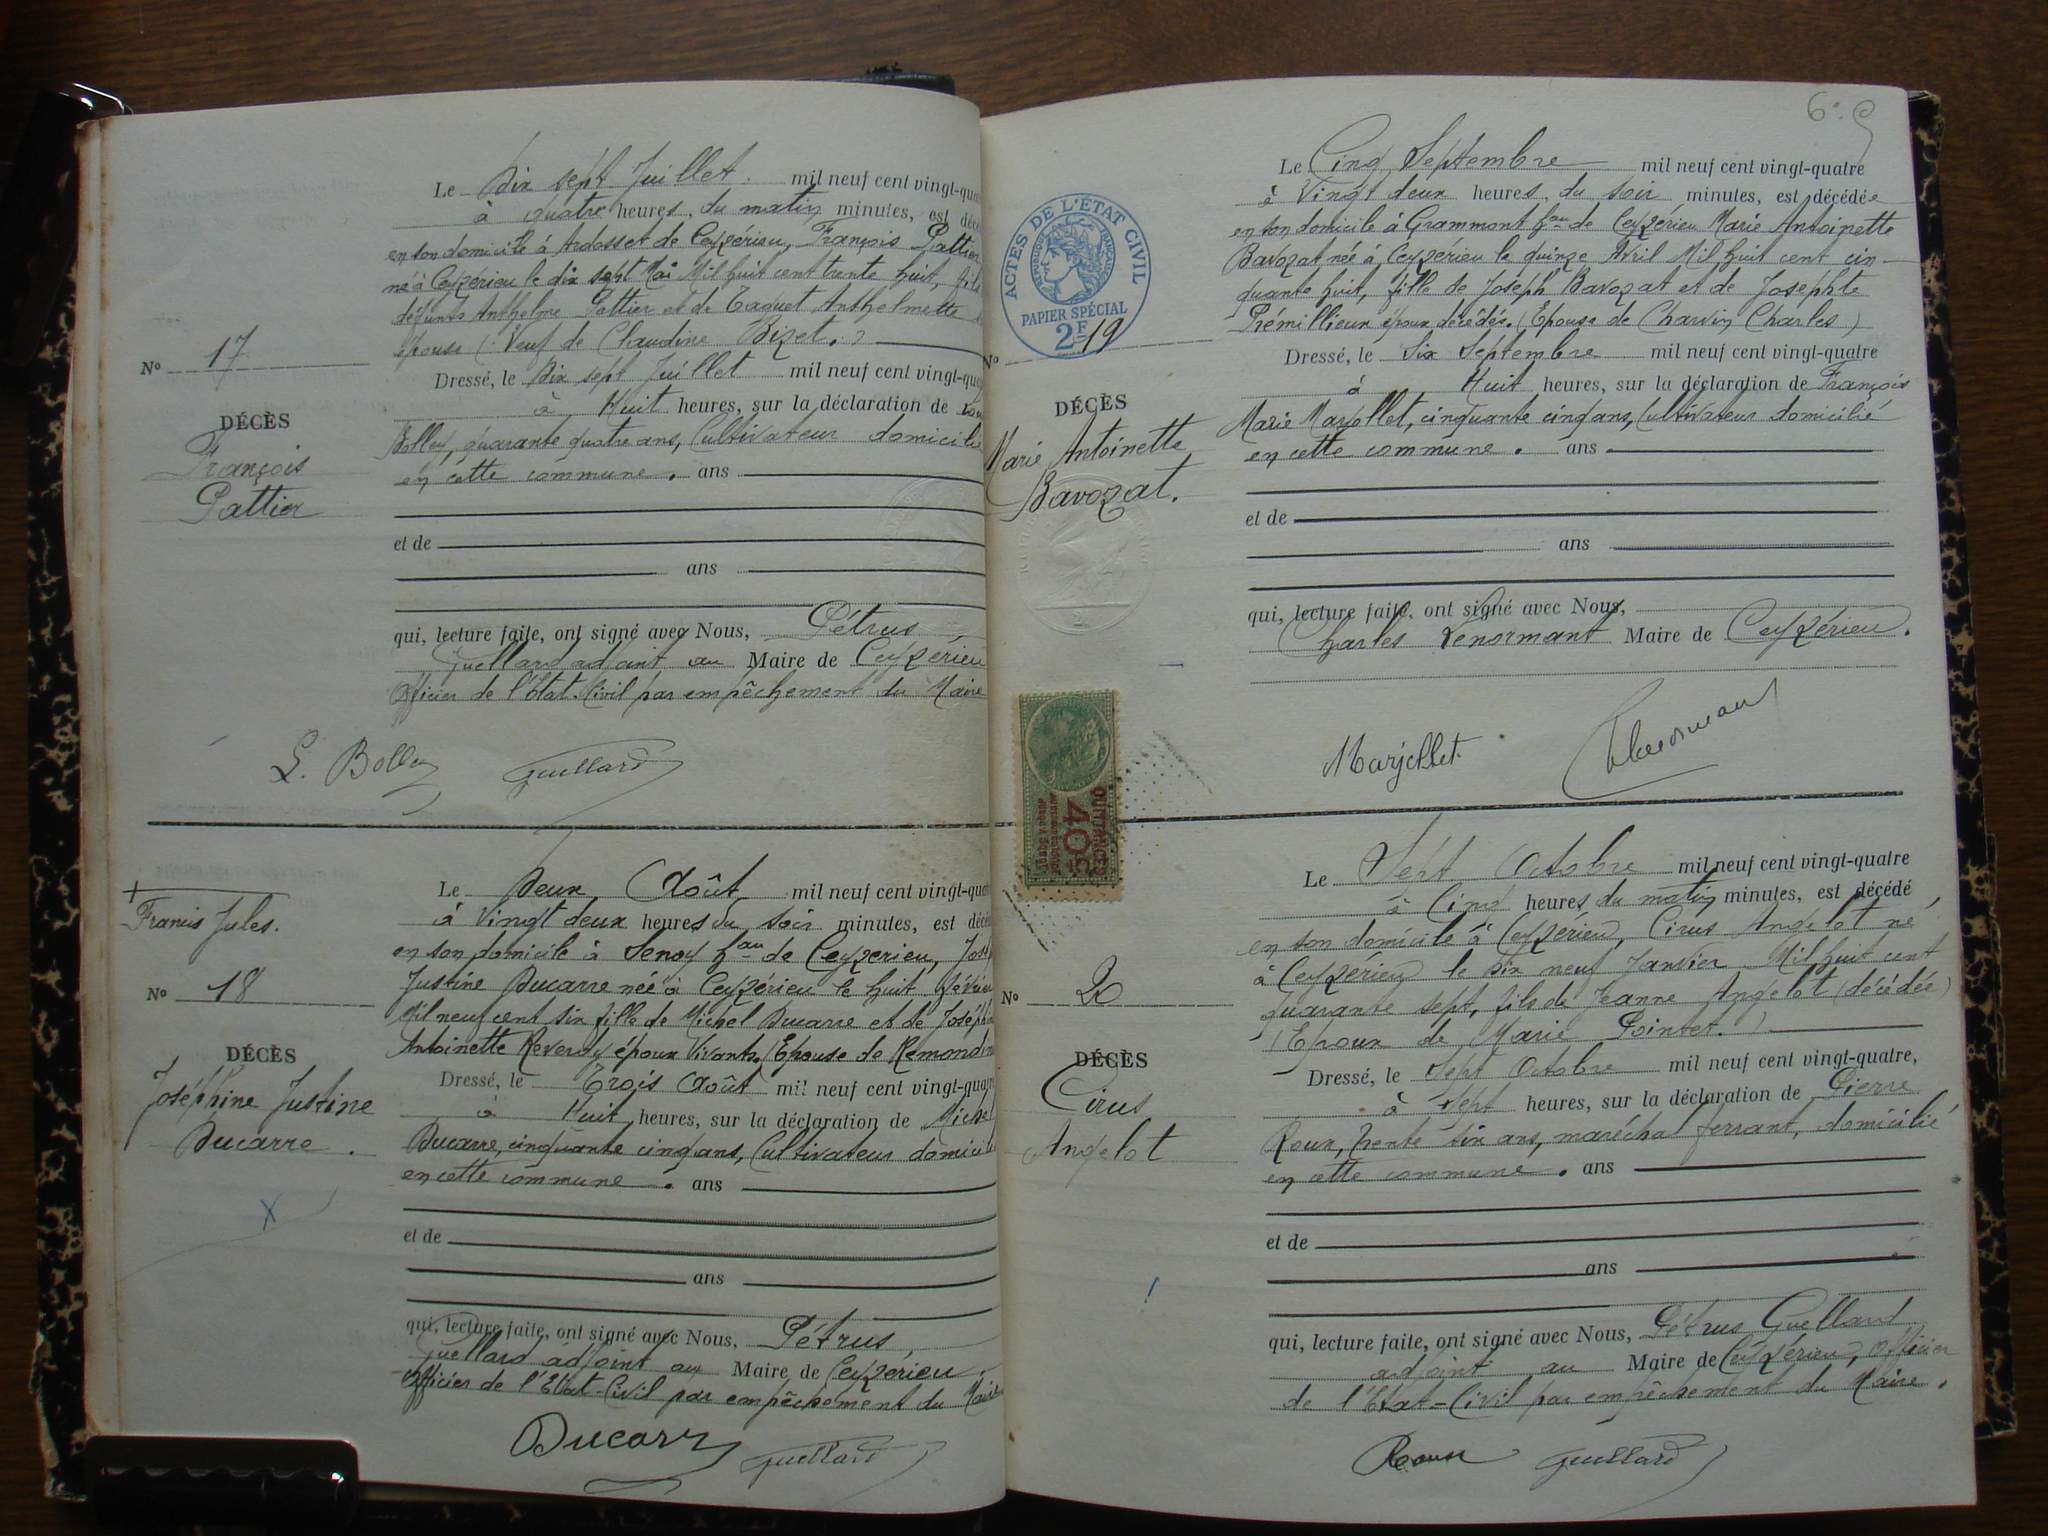 Le Dix sept Juillet. mil neuf cent vingt-qua
à quatre heures, du matin minutes, est décé
en son domicile à Ardosset de Ceyzérieu, François Pattier
né à Ceyzérieu le dix sept Mai Mil huit cent trente huit, fils
défunts Anthelme Pattier et de Taquet Anthelmette
épouse (Veuf de Claudine Bizet.)
Nº 17
Dressé, le Dix sept Juillet mil neuf cent vingt-qua
à Huit heures, sur la déclaration de
DÉCÈS
François
Pattier
Bolley, quarante quatre ans, Cultivateur domicilié
en cette commune. ans
et de
ans
qui, lecture faite, ont signé avec Nous, Pétrus
Guellard adjoint au Maire de Ceyzérieu
Officier de l'Etat-Civil par empêchement du Maire
L. Bolley Guellard
Francis Jules.
Le Deux Août mil neuf cent vingt-qua
à Vingt deux heures du soir minutes, est décé
en son domicile à Senoy hau de Ceyzerieu, José
Justine Ducarre née à Ceyzérieu le huit Février
Mil neuf cent six fille de Michel Ducarre et de Joséphi
Antoinette Reverdy époux Vivants. (Epouse de Rémondin
Nº 18
DÉCÈS
Joséphine Justine
Ducarre.
X
Dressé, le Trois Août mil neuf cent vingt-qua
à Huit heures, sur la déclaration de Michel
Ducarre, cinquante cinq ans, Cultivateur domicilié
en cette commune. ans
et de
ans
qui, lecture faite, ont signé avec Nous, Pétrus
Guellard adjoint au Maire de Ceyzérieu,
Officier de l'Etat-Civil par empêchement du Maire
Ducarre Guellard
6e
ACTES DE L'ÉTAT CIVIL
RÉPUBLIQUE FRANÇAISE
PAPIER SPÉCIAL
2F
Le Cinq Septembre mil neuf cent vingt-quatre
à Vingt deux heures, du soir minutes, est décédée
en son domicile à Grammont hau de Ceyzerieu Marie Antoinette
Bavozat née à Ceyzérieu le quinze Avril Mil huit cent cin-
quante huit, fille de Joseph Bavozat et de Josephte
Prémillieux époux décédés. (Epouse de Charvin Charles)
Nº 19
DÉCÈS
Marie Antoinette
Bavozat.
Dressé, le Six Septembre mil neuf cent vingt-quatre
à Huit heures, sur la déclaration de François
Marie Marjollet, cinquante cinq ans, Cultivateur domicilié
en cette commune. ans
et de
ans
qui, lecture faite, ont signé avec Nous,
Charles Lenormant Maire de Ceyzérieu.
Marjollet. Lenormant
QUITTANCES
40c
Le Sept Octobre mil neuf cent vingt-quatre
à Cinq heures du matin minutes, est décédé
en son domicile à Ceyzérieu, Cirus Angelot né
à Ceyzérieu le Dix neuf Janvier Mil huit cent
quarante sept, fils de Jeanne Angelot (décédée)
(Epoux de Marie Pointet.)
Nº 20
DÉCÈS
Cirus
Angelot
Dressé, le Sept Octobre mil neuf cent vingt-quatre,
à Sept heures, sur la déclaration de Pierre
Roux, trente six ans, maréchal ferrant, domicilié
en cette commune. ans
et de
ans
qui, lecture faite, ont signé avec Nous, Pétrus Guellard
adjoint au Maire de Ceyzérieu, Officier
de l'Etat-Civil par empêchement du Maire.
Roux Guellard